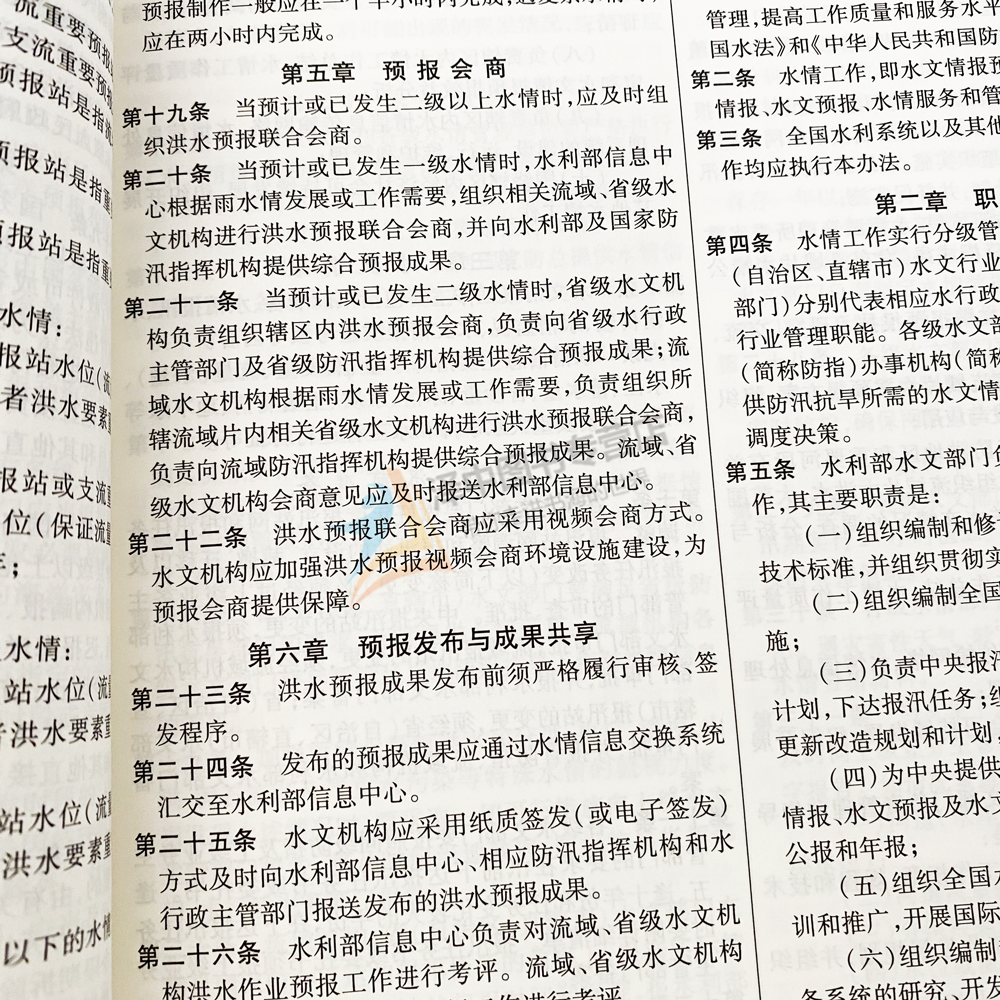 流重要预报
支流重要预报
预报站是指流
预报站是指重
预报站是指重
水情:
报站水位(流
者洪水要素重
报站或支流
位(保证流量
年;
水情:
站水位(流
者洪水要素重
站水位(流量
洪水要素重
以下的水情
预报制作一般应在一个半小时内完成,
应在两小时内完成。
第五章 预报会商
第十九条 当预计或已发生二级以上水情时,应及时组
织洪水预报联合会商。
第二十条 当预计或已发生一级水情时,水利部信息中
心根据雨水情发展或工作需要,组织相关流域、省级水
文机构进行洪水预报联合会商,并向水利部及国家防
汛指挥机构提供综合预报成果。
第二十一条 当预计或已发生二级水情时,省级水文机
构负责组织辖区内洪水预报会商,负责向省级水行政
主管部门及省级防汛指挥机构提供综合预报成果;流
域水文机构根据雨水情发展或工作需要,负责组织所
辖流域片内相关省级水文机构进行洪水预报联合会商,
负责向流域防汛指挥机构提供综合预报成果。流域、省
级水文机构会商意见应及时报送水利部信息中心。
第二十二条 洪水预报联合会商应采用视频会商方式。
水文机构应加强洪水预报视频会商环境设施建设,为
预报会商提供保障。
第六章 预报发布与成果共享
第二十三条 洪水预报成果发布前须严格履行审核、签
发程序。
第二十四条 发布的预报成果应通过水情信息交换系统
汇交至水利部信息中心。
第二十五条 水文机构应采用纸质签发(或电子签发)
方式及时向水利部信息中心、相应防汛指挥机构和水
行政主管部门报送发布的洪水预报成果。
第二十六条 水利部信息中心负责对流域、省级水文机
构洪水作业预报工作进行考评。流域、省级水文机构
工作进行考评
管理,提高工作质量和服务水平
国水法》和《中华人民共和国防
第二条 水情工作,即水文情报预
情报、水文预报、水情服务和管
第三条 全国水利系统以及其他
作均应执行本办法。
第二章 职
第四条 水情工作实行分级管
(自治区、直辖市)水文行业
部门)分别代表相应水行政
行业管理职能。各级水文部
(简称防指)办事机构(简称
供防汛抗旱所需的水文情
调度决策。
第五条 水利部水文部门负
作,其主要职责是:
(一)组织编制和修
技术标准,并组织贯彻实
(二)组织编制全国
施;
(三)负责中央报汛
计划,下达报汛任务;组
更新改造规划和计划,
(四)为中央提供
情报、水文预报及水文
公报和年报;
(五)组织全国水
训和推广,开展国际
(六)组织编制
各系统的研究、开发